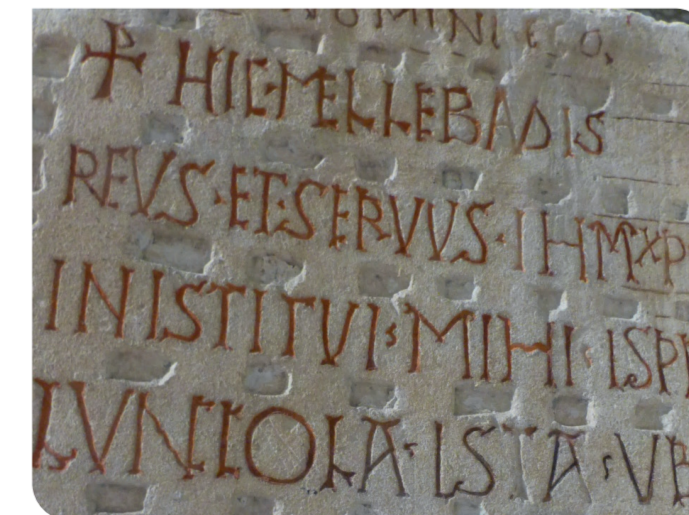 ☧ HIC·MELLEBADIS
REVS·ET·SERVVS·IHM XP
INISTITVI·MIHI·ISP
LVNCOLA·ISTA·VB